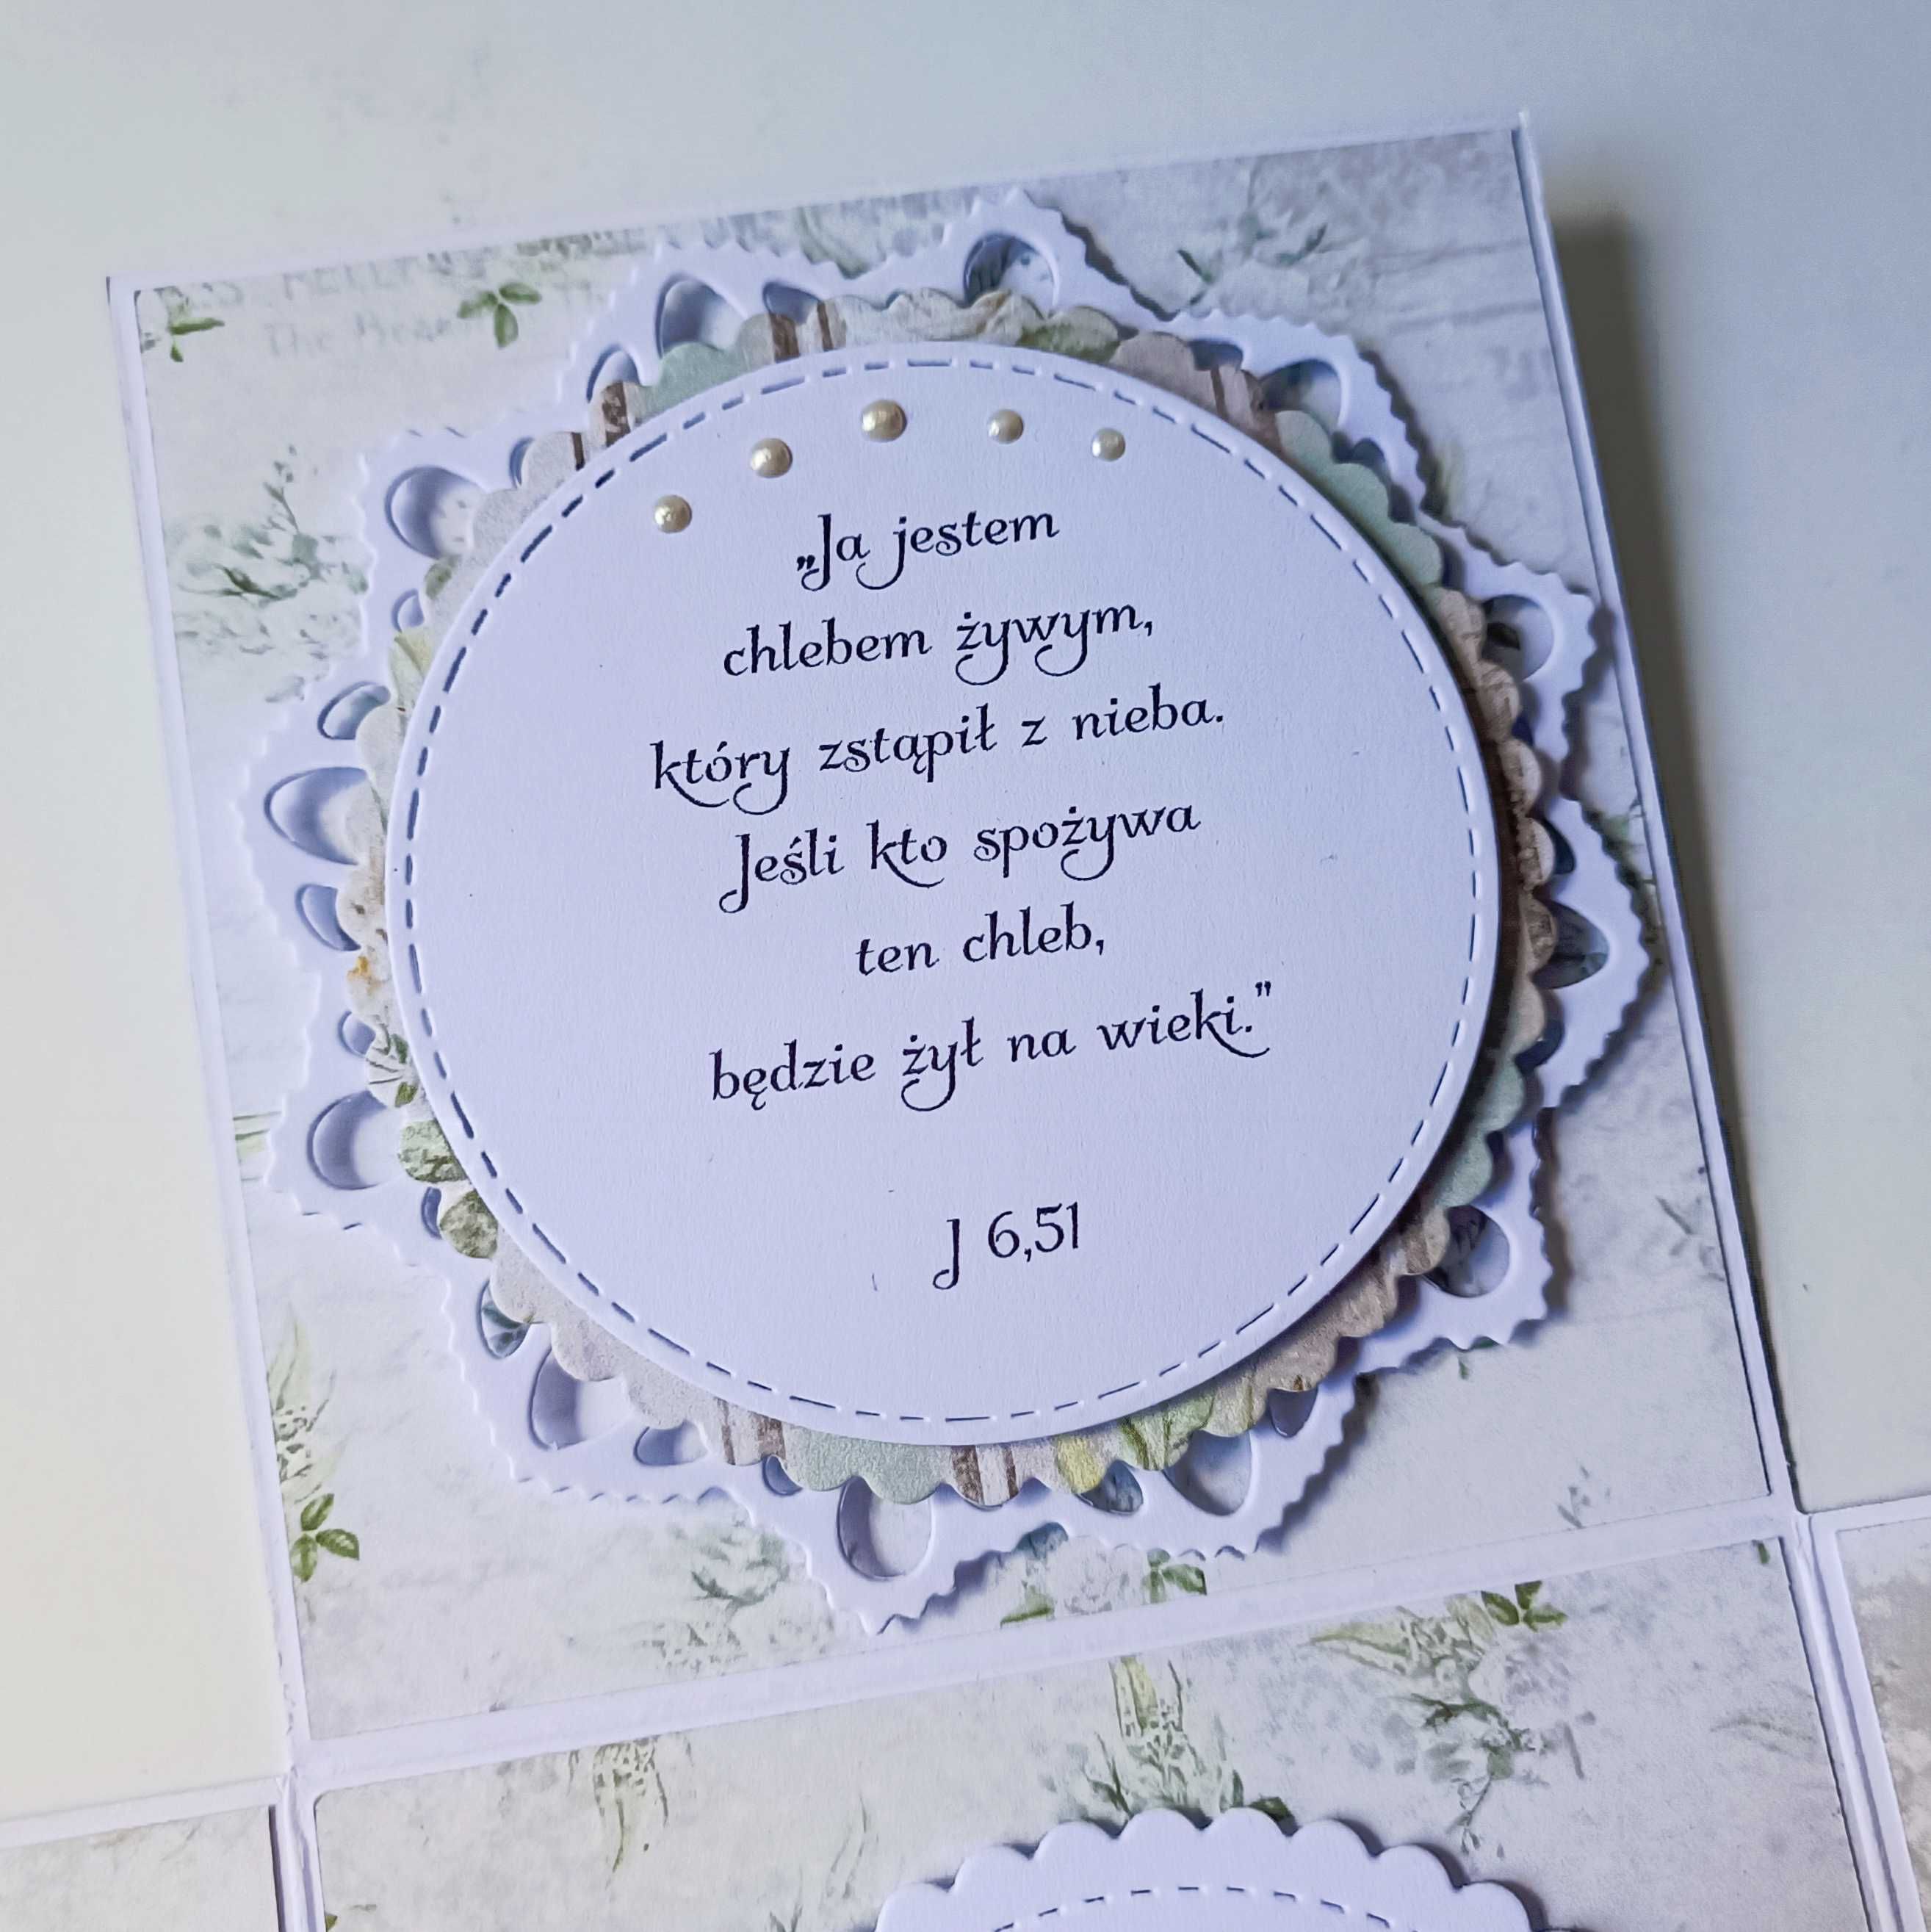 „Ja jestem
chlebem żywym,
który zstąpił z nieba.
Jeśli kto spożywa
ten chleb,
będzie żył na wieki."
J 6,51